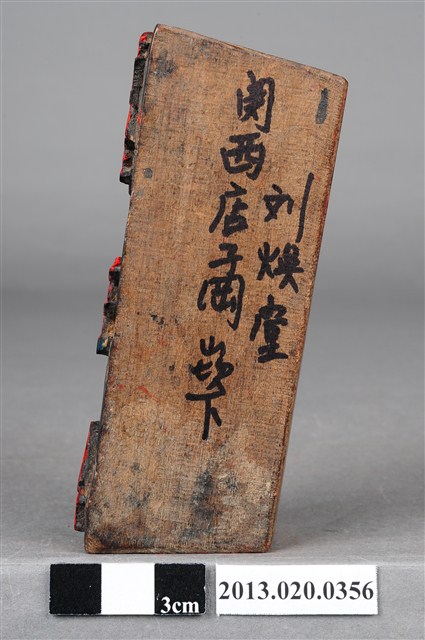 刘煥堂
関西店子岡崁下
3cm
2013.020.0356